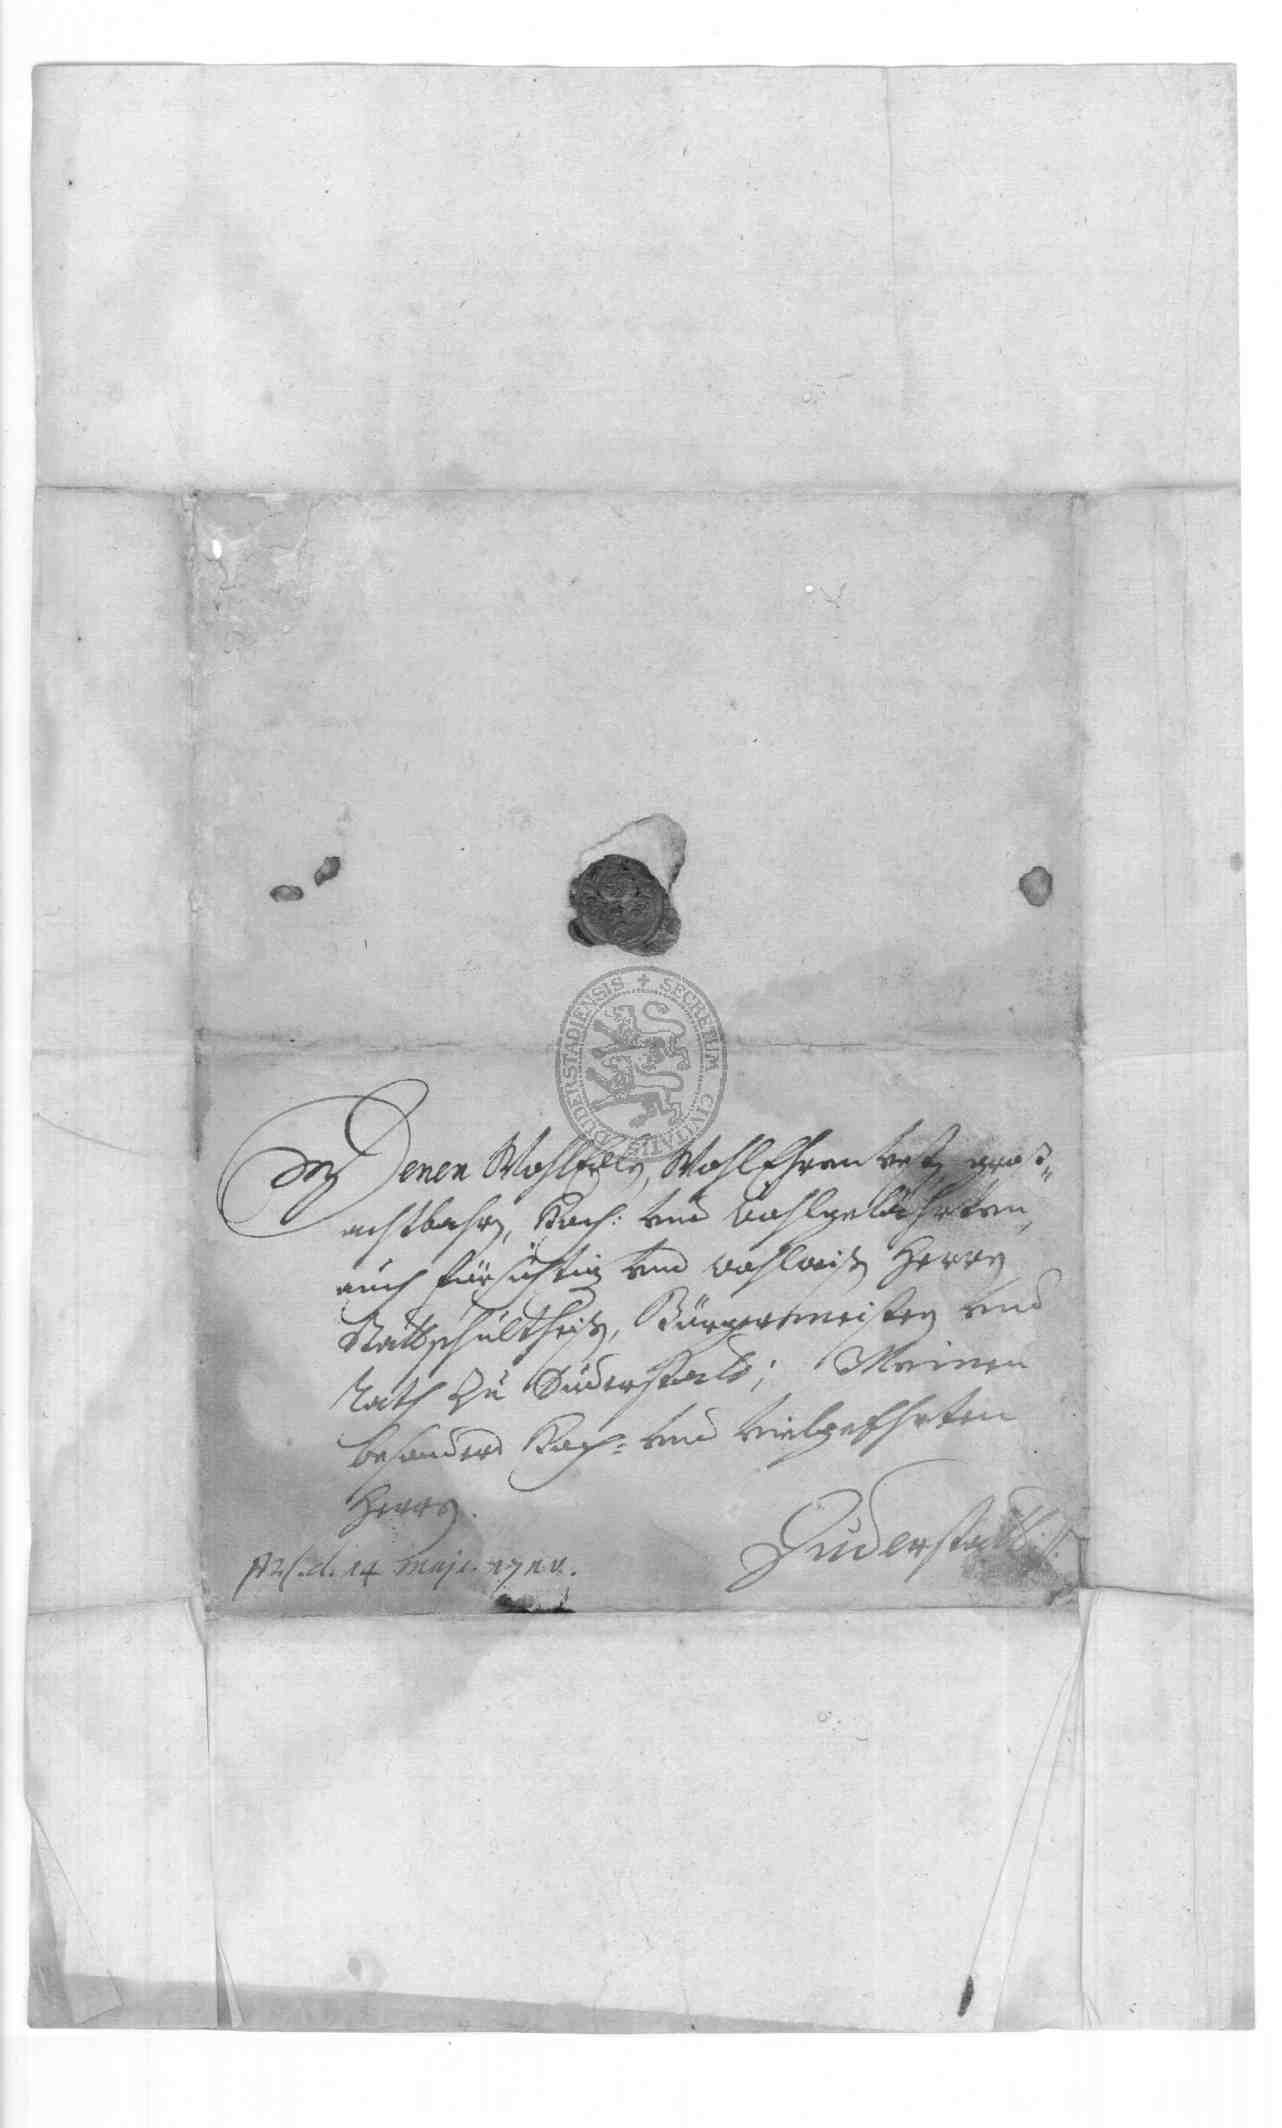 SECRETUM CIVITATIS DUDERSTADIENSIS
Denen WohlEdlen, WohlEhrenvest, groß-
achtbahrn, Hoch: und wohlgelährten,
auch fürsichtig und wohlweiß Herrn
Stattschultheiß, Bürgermeister und
Rath zu Duderstadt; Meinen
besonders Hoch- und vielgeehrten
Herrn.
Duderstadt.
d. 14 maji.